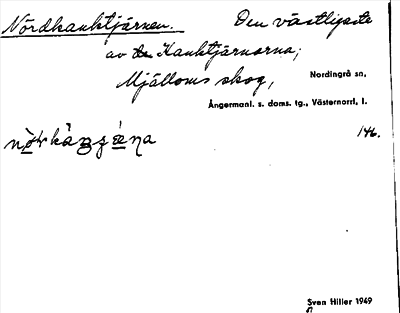 Nordkanktjärnen. Den västligaste
av de Kanktjärnarna;
Mjälloms skog, Nordingrå sn,
Ångermanl. s. doms. tg., Västernorrl. l.
146.
Sven Hiller 1949